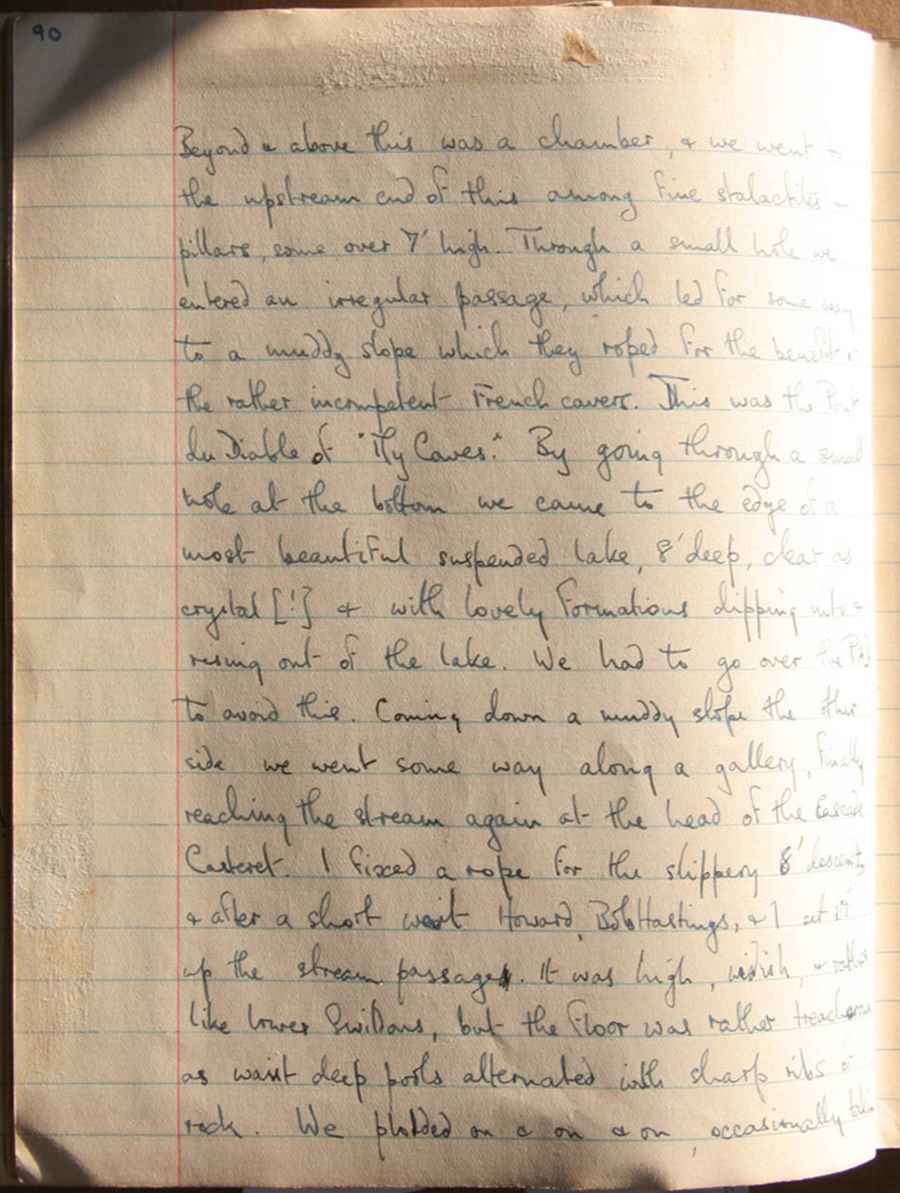 90
Beyond & above this was a chamber, & we went
the upstream end of this among fine stalactites
pillars, some over 7' high. Through a small hole we
entered an irregular passage, which led for some way
to a muddy slope which they roped for the benefit
the rather incompetent French cavers. This was the Pont
du Diable of "My Caves". By going through a small
hole at the bottom we came to the edge of a
most beautiful suspended lake, 8' deep, clear as
crystal [!] & with lovely formations dipping into &
rising out of the lake. We had to go over the
to avoid this. Coming down a muddy slope the
side we went some way along a gallery, finally
reaching the stream again at the head of the Cascade
Casteret. I fixed a rope for the slippery 8' descent,
& after a short wait Howard, Bob Hastings, & I set off
up the stream passage. It was high, widish, & rather
like lower Swildons, but the floor was rather treacherous
as waist deep pools alternated with sharp ribs of
rock. We plodded on & on & on, occasionally